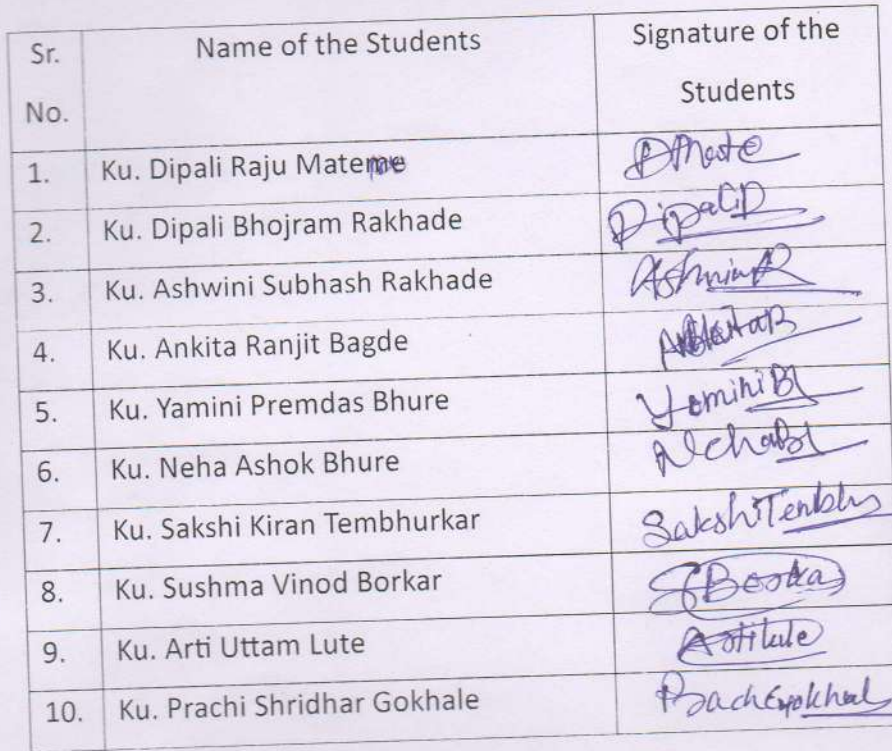 Sr. No. Name of the Students Signature of the Students
1. Ku. Dipali Raju Mate DMate
2. Ku. Dipali Bhojram Rakhade DipaliD
3. Ku. Ashwini Subhash Rakhade AshwiniR
4. Ku. Ankita Ranjit Bagde AnkitaB
5. Ku. Yamini Premdas Bhure
6. Ku. Neha Ashok Bhure
7. Ku. Sakshi Kiran Tembhurkar Sakshi
8. Ku. Sushma Vinod Borkar
9. Ku. Arti Uttam Lute
10. Ku. Prachi Shridhar Gokhale